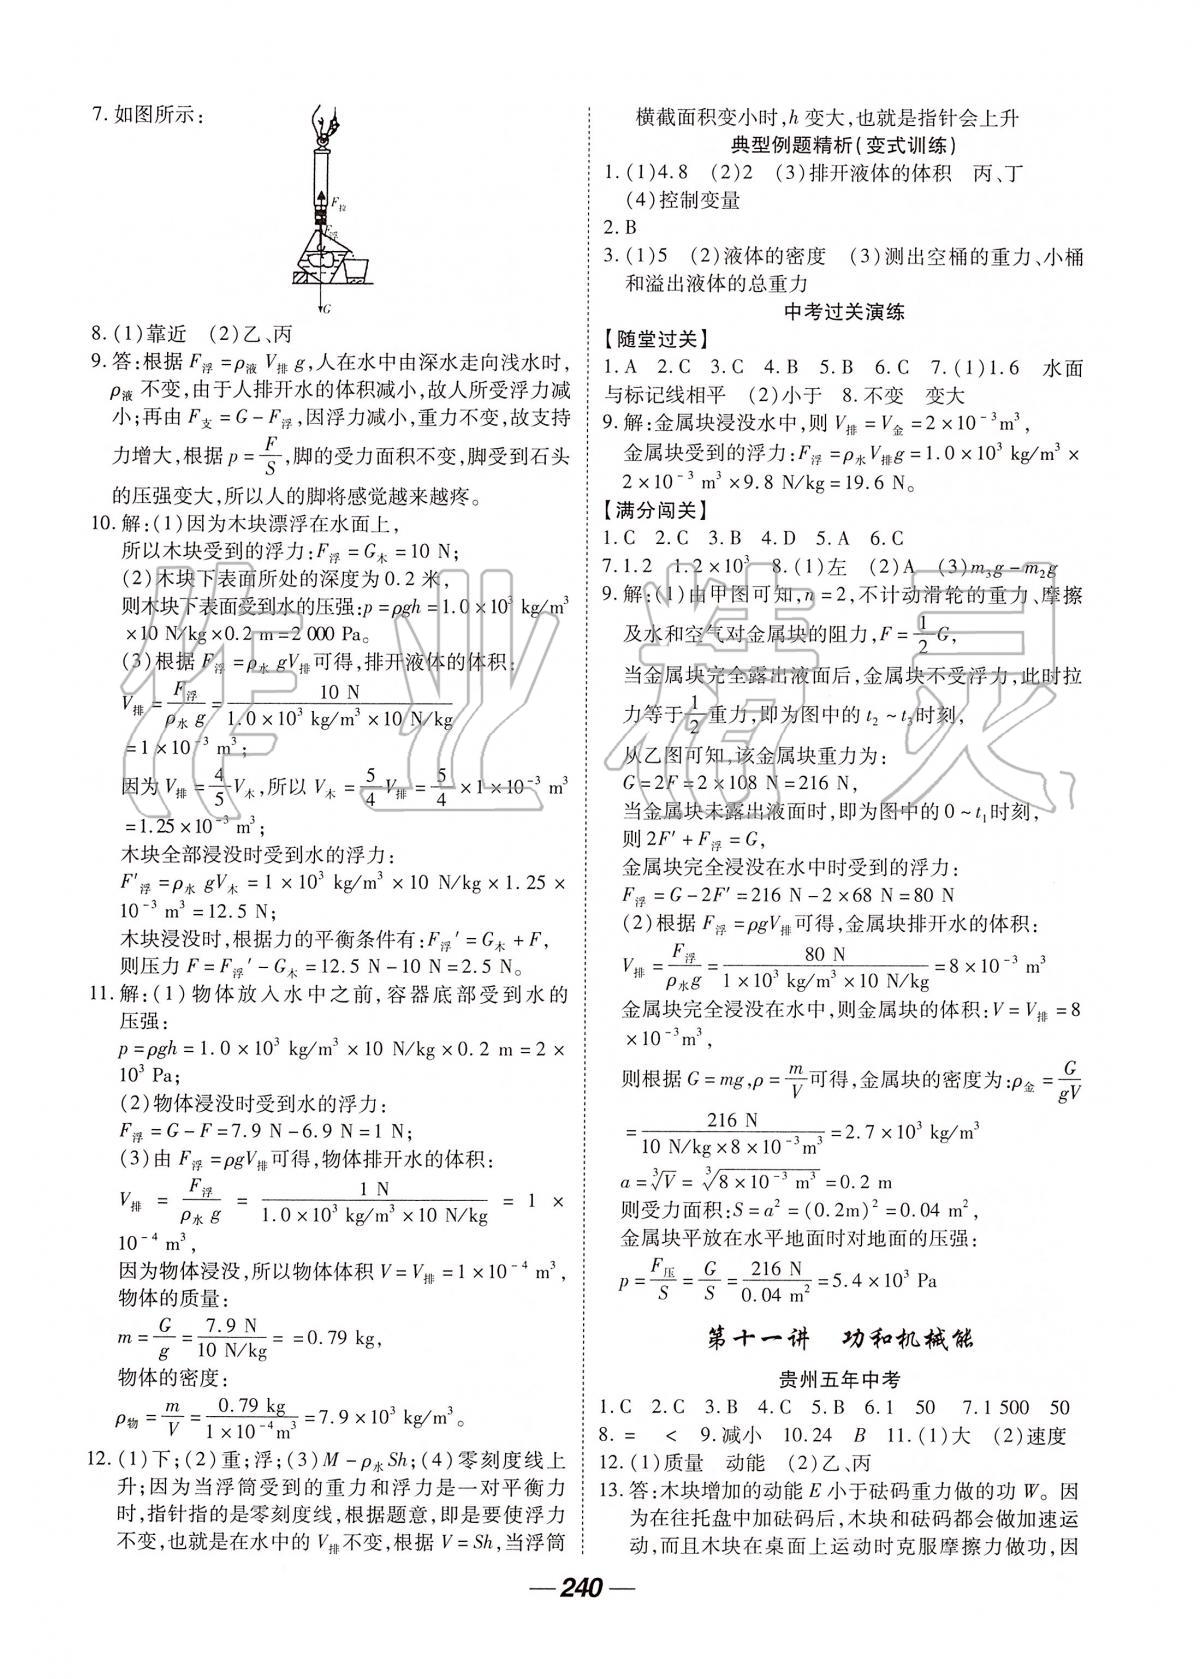 7. 如图所示:
F拉
F浮
G
8. (1)靠近　(2)乙、丙
9. 答:根据 F浮 =ρ液 V排 g,人在水中由深水走向浅水时,
ρ液 不变,由于人排开水的体积减小,故人所受浮力减
小;再由 F支 = G - F浮,因浮力减小,重力不变,故支持
力增大,根据 p = F/S,脚的受力面积不变,脚受到石头
的压强变大,所以人的脚将感觉越来越疼。
10. 解:(1)因为木块漂浮在水面上,
所以木块受到的浮力:F浮 = G木 = 10 N;
(2)木块下表面所处的深度为 0.2 米,
则木块下表面受到水的压强:p = ρgh = 1.0×10³ kg/m³
×10 N/kg×0.2 m = 2 000 Pa。
(3)根据 F浮 =ρ水 gV排 可得,排开液体的体积:
V排 = F浮/(ρ水 g) = 10 N/(1.0×10³ kg/m³×10 N/kg)
= 1×10⁻³ m³;
因为 V排 = 4/5 V木,所以 V木 = 5/4 V排 = 5/4 ×1×10⁻³ m³
= 1.25×10⁻³ m³;
木块全部浸没时受到水的浮力:
F′浮 =ρ水 gV木 = 1×10³ kg/m³×10 N/kg×1.25×
10⁻³ m³ = 12.5 N;
木块浸没时,根据力的平衡条件有:F浮′ = G木 + F,
则压力 F = F浮′ - G木 = 12.5 N - 10 N = 2.5 N。
11. 解:(1)物体放入水中之前,容器底部受到水的
压强:
p = ρgh = 1.0×10³ kg/m³×10 N/kg×0.2 m = 2×
10³ Pa;
(2)物体浸没时受到水的浮力:
F浮 = G - F = 7.9 N - 6.9 N = 1 N;
(3)由 F浮 =ρgV排 可得,物体排开水的体积:
V排 = F浮/(ρ水 g) = 1 N/(1.0×10³ kg/m³×10 N/kg) = 1 ×
10⁻⁴ m³,
因为物体浸没,所以物体体积 V = V排 = 1×10⁻⁴ m³,
物体的质量:
m = G/g = 7.9 N/(10 N/kg) = = 0.79 kg,
物体的密度:
ρ物 = m/V = 0.79 kg/(1×10⁻⁴m³) = 7.9×10³ kg/m³。
12. (1)下;(2)重;浮;(3)M - ρ水Sh;(4)零刻度线上
升;因为当浮筒受到的重力和浮力是一对平衡力
时,指针指的是零刻度线,根据题意,即是要使浮力
不变,也就是在水中的 V排 不变,根据 V = Sh,当浮筒
横截面积变小时,h 变大,也就是指针会上升
典型例题精析(变式训练)
1. (1)4.8　(2)2　(3)排开液体的体积　丙、丁
(4)控制变量
2. B
3. (1)5　(2)液体的密度　(3)测出空桶的重力、小桶
和溢出液体的总重力
中考过关演练
【随堂过关】
1. A　2. C　3. C　4. B　5. B　6. C　7. (1)1.6　水面
与标记线相平　(2)小于　8. 不变　变大
9. 解:金属块浸没水中,则 V排 = V金 = 2×10⁻³m³,
金属块受到的浮力:F浮 =ρ水V排g = 1.0×10³ kg/m³×
2×10⁻³ m³×9.8 N/kg = 19.6 N。
【满分闯关】
1. C　2. C　3. B　4. D　5. A　6. C
7. 1.2　1.2×10³　8. (1)左　(2)A　(3)m₃g - m₂g
9. 解:(1)由甲图可知,n = 2,不计动滑轮的重力、摩擦
及水和空气对金属块的阻力,F = 1/2 G,
当金属块完全露出液面后,金属块不受浮力,此时拉
力等于 1/2 重力,即为图中的 t₂ ~ t₃时刻,
从乙图可知,该金属块重力为:
G = 2F = 2×108 N = 216 N,
当金属块未露出液面时,即为图中的 0 ~ t₁时刻,
则 2F′ + F浮 = G,
金属块完全浸没在水中时受到的浮力:
F浮 = G - 2F′ = 216 N - 2×68 N = 80 N
(2)根据 F浮 =ρgV排 可得,金属块排开水的体积:
V排 = F浮/(ρ水g) = 80 N/(1×10³ kg/m³×10 N/kg) = 8×10⁻³ m³
金属块完全浸没在水中,则金属块的体积:V = V排 = 8
×10⁻³m³,
则根据 G = mg,ρ = m/V 可得,金属块的密度为:ρ金 = G/(gV)
= 216 N/(10 N/kg×8×10⁻³m³) = 2.7×10³ kg/m³
a = ³√V = ³√(8×10⁻³ m³) = 0.2 m
则受力面积:S = a² = (0.2m)² = 0.04 m²,
金属块平放在水平地面时对地面的压强:
p = F压/S = G/S = 216 N/(0.04 m²) = 5.4×10³ Pa
第十一讲　功和机械能
贵州五年中考
1. C　2. C　3. B　4. C　5. B　6. 1　50　7. 1 500　50
8. =　<　9. 减小　10. 24　B　11. (1)大　(2)速度
12. (1)质量　动能　(2)乙、丙
13. 答:木块增加的动能 E 小于砝码重力做的功 W。因
为在往托盘中加砝码后,木块和砝码都会做加速运
动,而且木块在桌面上运动时克服摩擦力做功,因
— 240 —
作业精灵